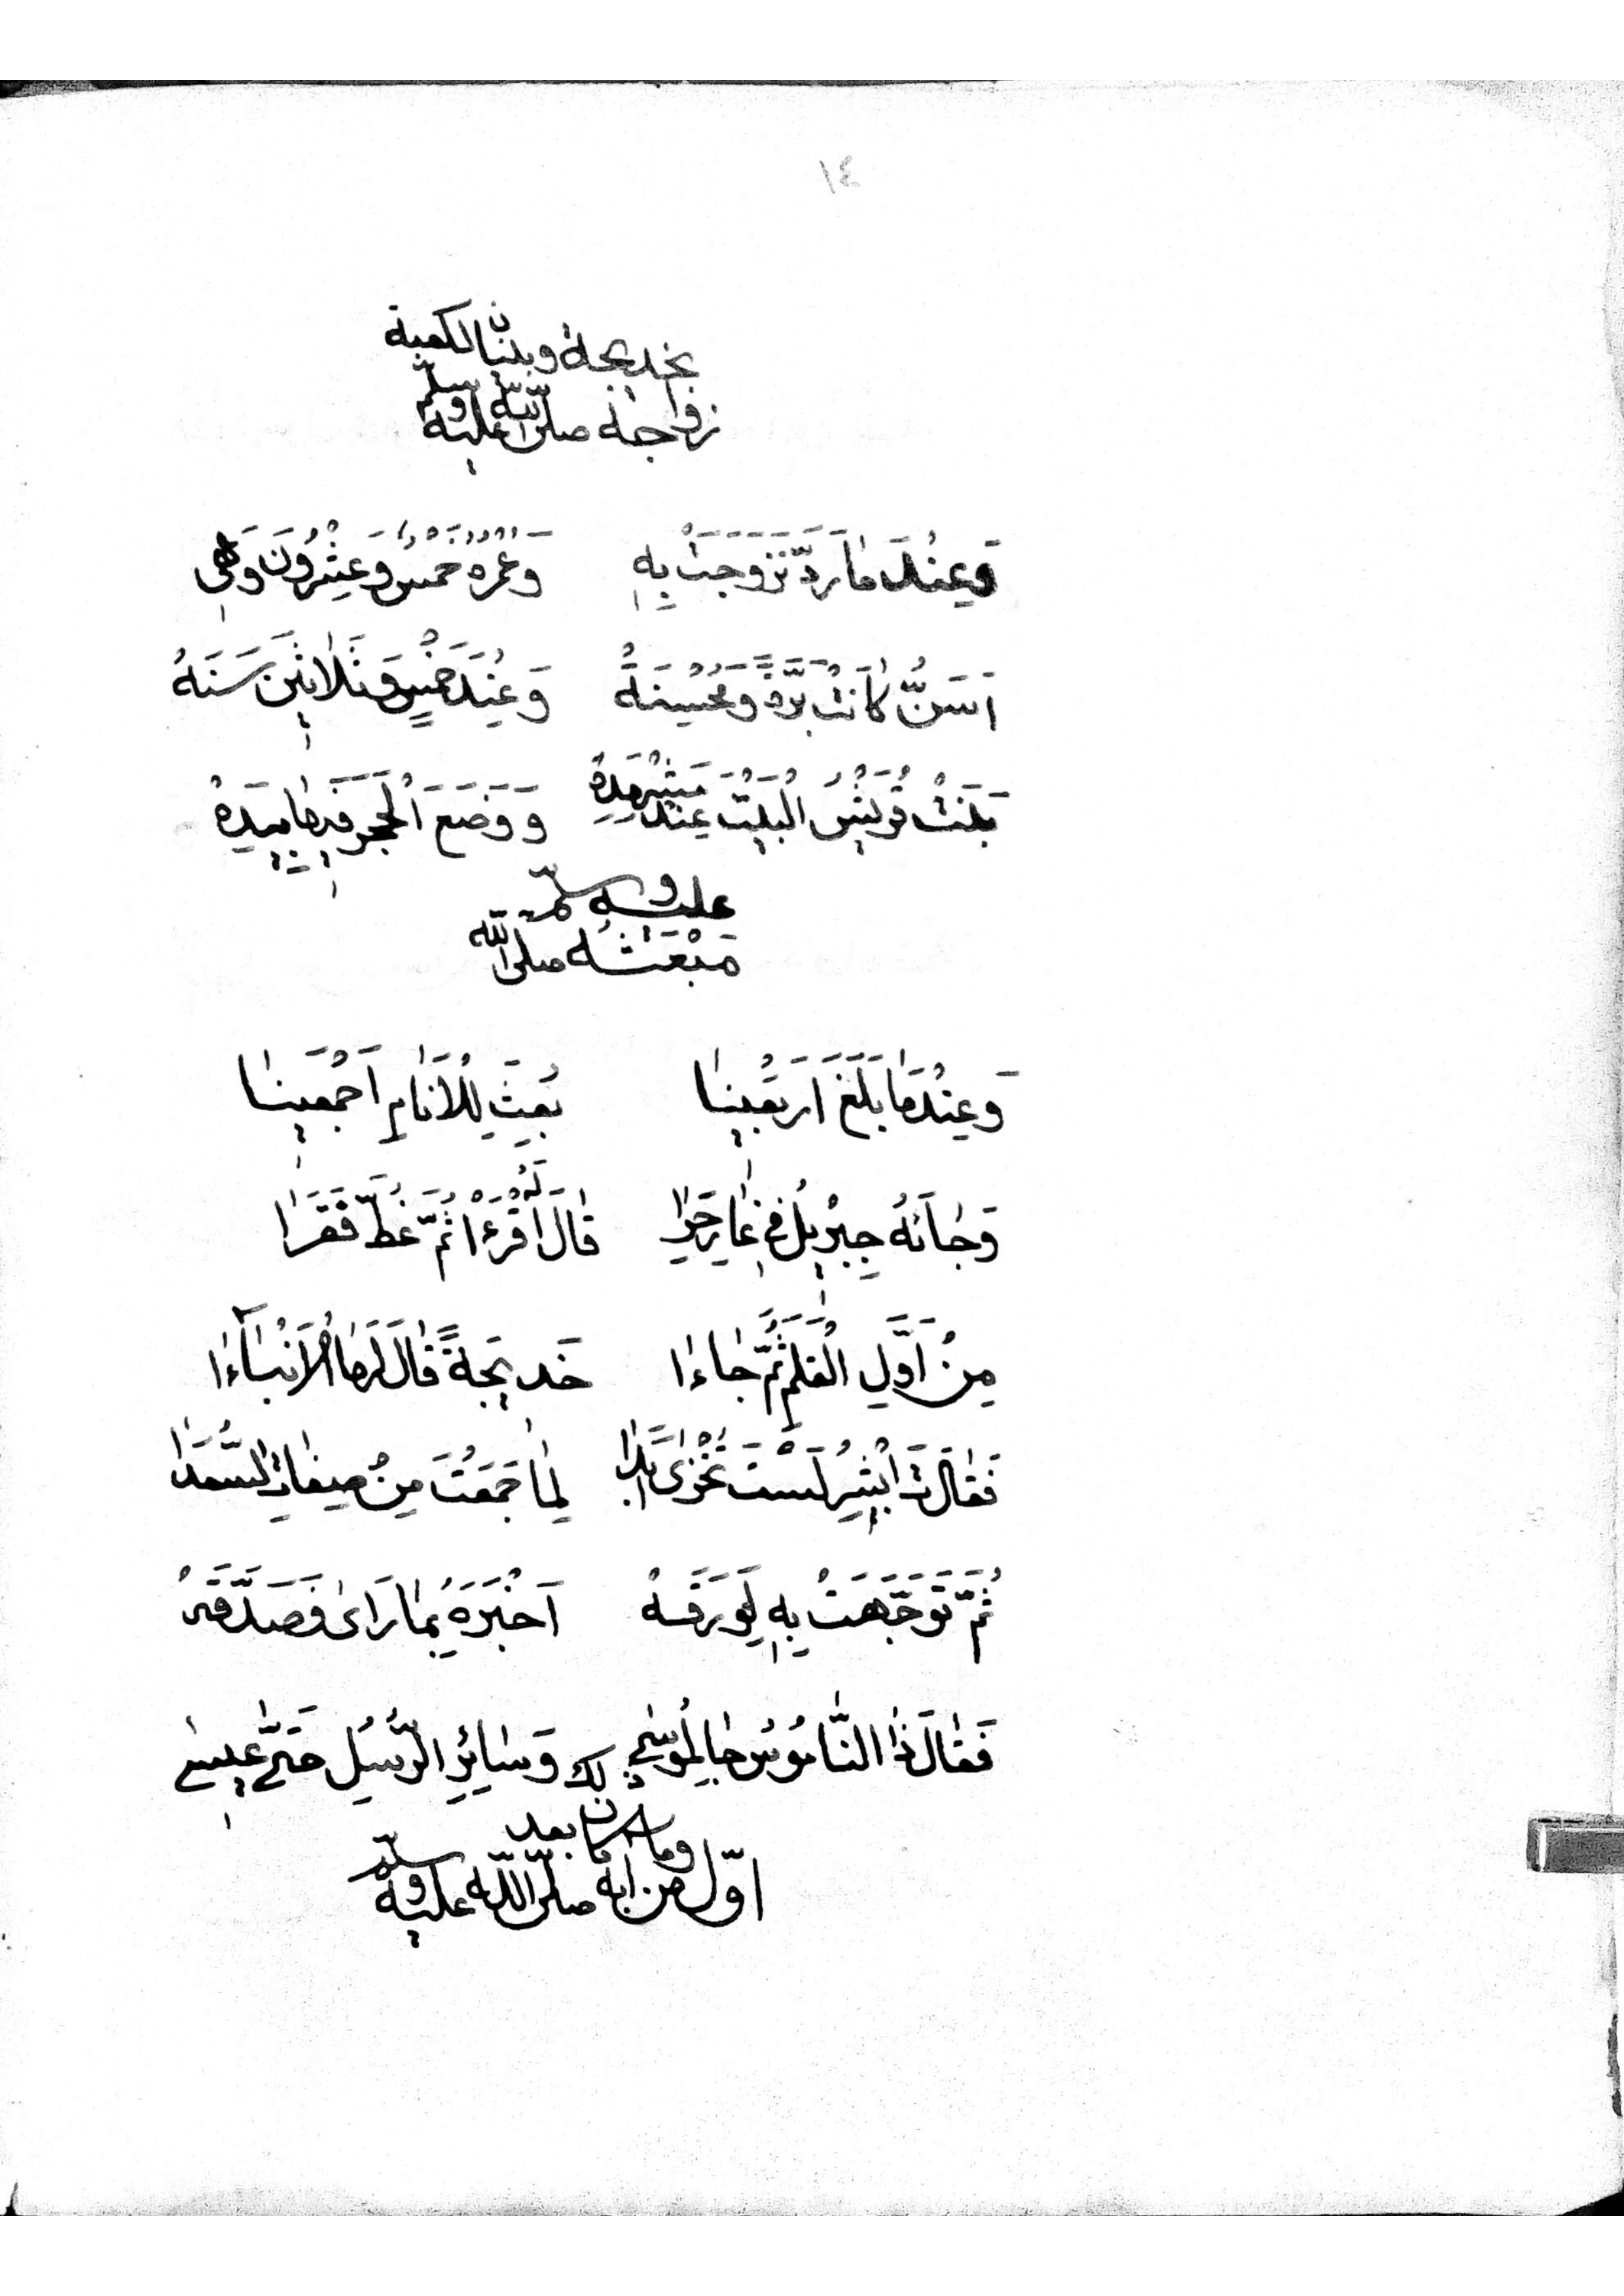 ١٤
زواجه صلى الله عليه وسلم
بخديجة وبنيان الكعبة
وَعِنْدَمَا رَدَّ تَزَوَجَتْ بِهِ وَعُمْرُهُ خَمْسٌ وَعِشْرُونَ وَهْيَ
اَسَنُّ كَانَتْ بَرَّةً وَمُحْسِنَةً وَعِنْدَ خَمْسٍ وَثَلَاثِينَ سَنَةْ
بَنَتْ قُرَيْشُ الْبَيْتَ عِنْدَ وَوَضَعَ الْحَجَرَ فِيهَا بِيَدِهْ
مَبْعَثُهُ صلى الله
عليه وسلم
وَعِنْدَمَا بَلَغَ اَرْبَعِينَا بُعِثَ لِلْاَنَامِ اَجْمَعِينَا
وَجَائَهُ جِبْرِيلُ فِي غَارِ حِرَا قَالَ لَهُ اقْرَءْ ثُمَّ غَطَّ فَقَرَا
مِنْ اَوَّلِ الْقَلَمِ ثُمَّ جَاءَا خَدِيجَةً قَالَ لَهَا الْاَنْبَاءَا
فَقَالَتْ اَبْشِرْ لَسْتَ تُخْزَى اَبَدَا لِمَا جَمَعْتَ مِنْ صِفَاتِ السُّعَدَا
ثُمَّ تَوَجَّهَتْ بِهِ لِوَرَقَهْ اَخْبَرَهُ بِمَا رَاَى فَصَدَّقَهْ
فَقَالَ ذَا النَّامُوسُ جَا لِمُوسَى وَسَائِرِ الرُّسُلِ حَتَّى عِيسَى
اوّل من آمن به صلى الله عليه وسلم
وما كان بعد ذلك